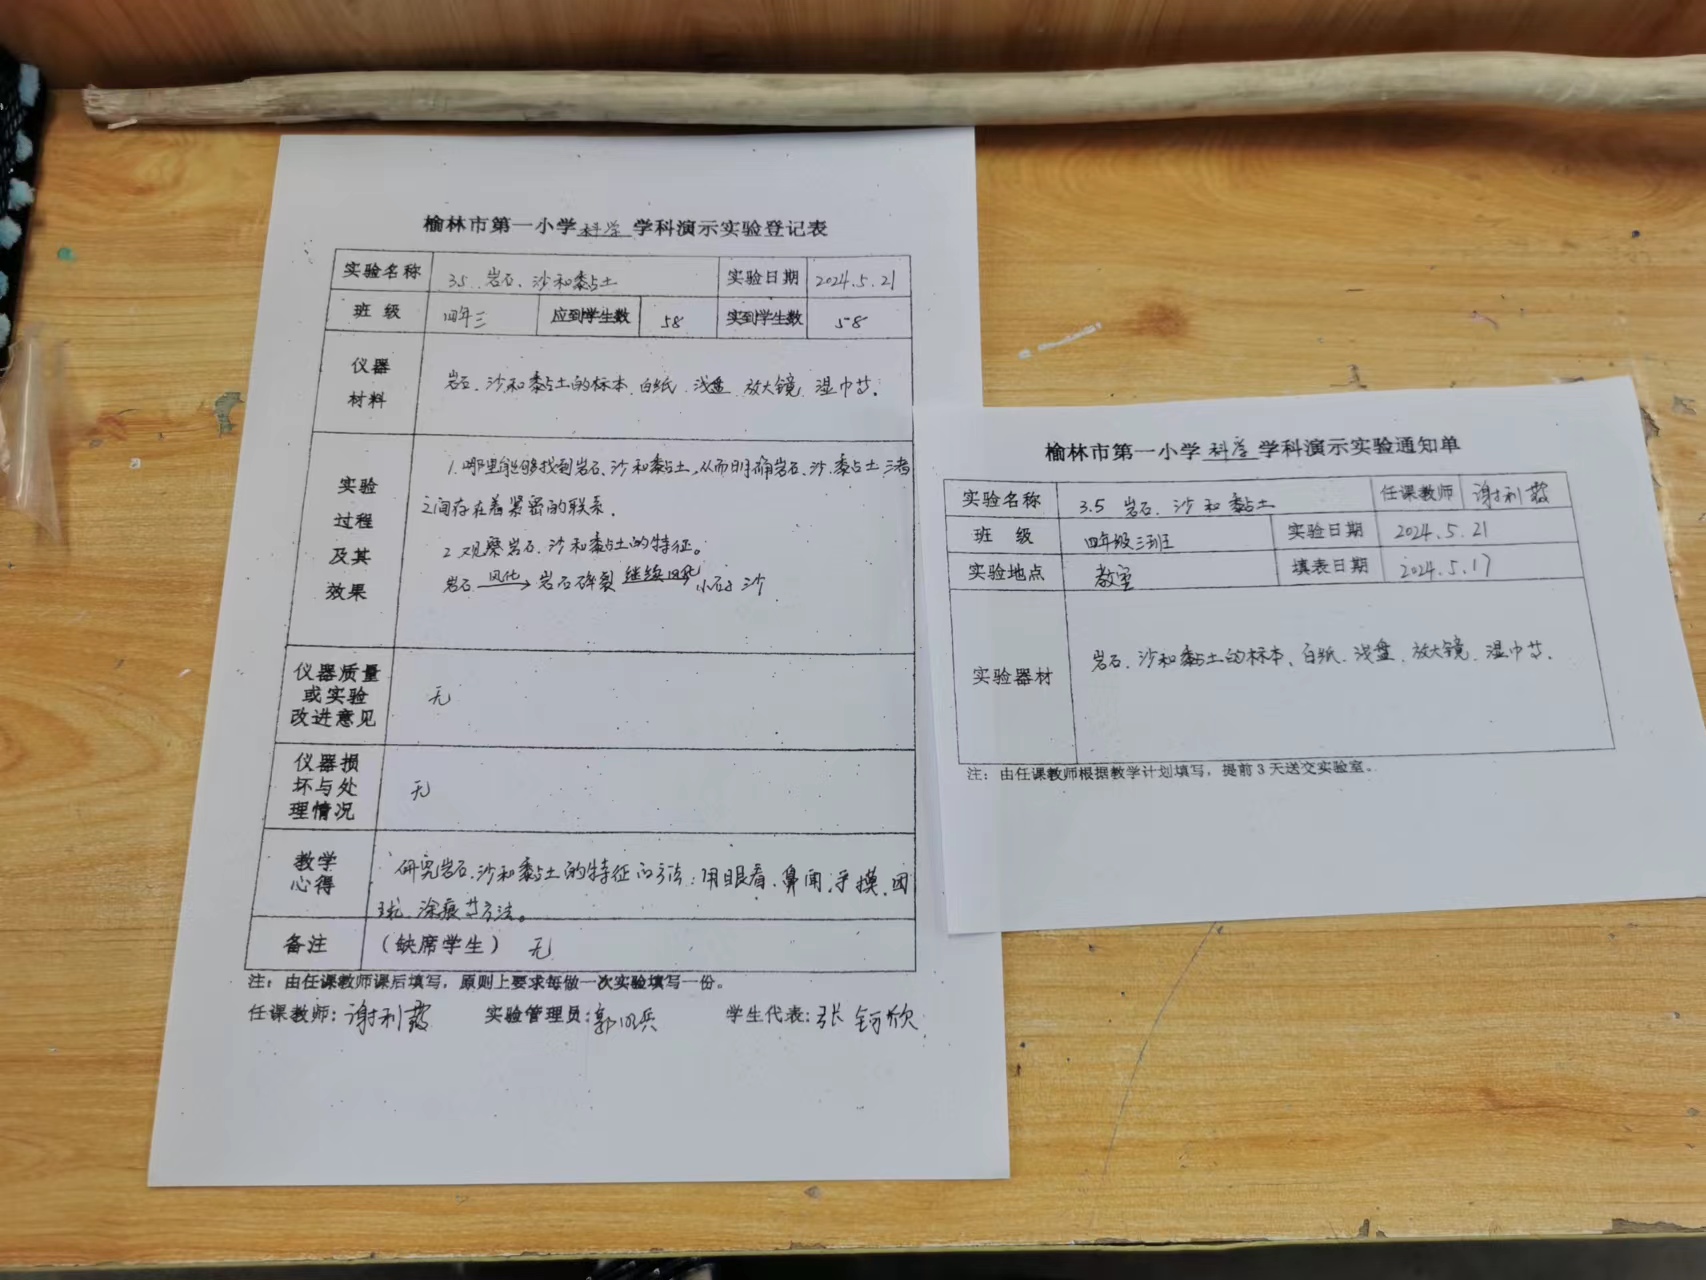 榆林市第一小学科学学科演示实验登记表
实验名称 3.5 岩石、沙和黏土 实验日期 2024.5.21
班级 四年三 应到学生数 58 实到学生数 58
仪器
材料
岩石、沙和黏土的标本、白纸、浅盘、放大镜、湿巾等。
实验
过程
及其
效果
1.哪里能够找到岩石、沙和黏土,从而明确岩石、沙、黏土三者
之间存在着紧密的联系。
2.观察岩石、沙和黏土的特征。
岩石 风化→ 岩石碎裂 继续风化 小石子 沙
仪器质量
或实验
改进意见
无
仪器损
坏与处
理情况
无
教学
心得
研究岩石、沙和黏土的特征的方法:用眼看、鼻闻、手摸、团
球、涂痕等方法。
备注 (缺席学生) 无
注:由任课教师课后填写,原则上要求每做一次实验填写一份。
任课教师:谢利 实验管理员: 学生代表:张钶欣
榆林市第一小学科学学科演示实验通知单
实验名称 3.5 岩石、沙和黏土 任课教师 谢利
班级 四年级三班 实验日期 2024.5.21
实验地点 教室 填表日期 2024.5.17
实验器材 岩石、沙和黏土的标本、白纸、浅盘、放大镜、湿巾等.
注:由任课教师根据教学计划填写,提前3天送交实验室。